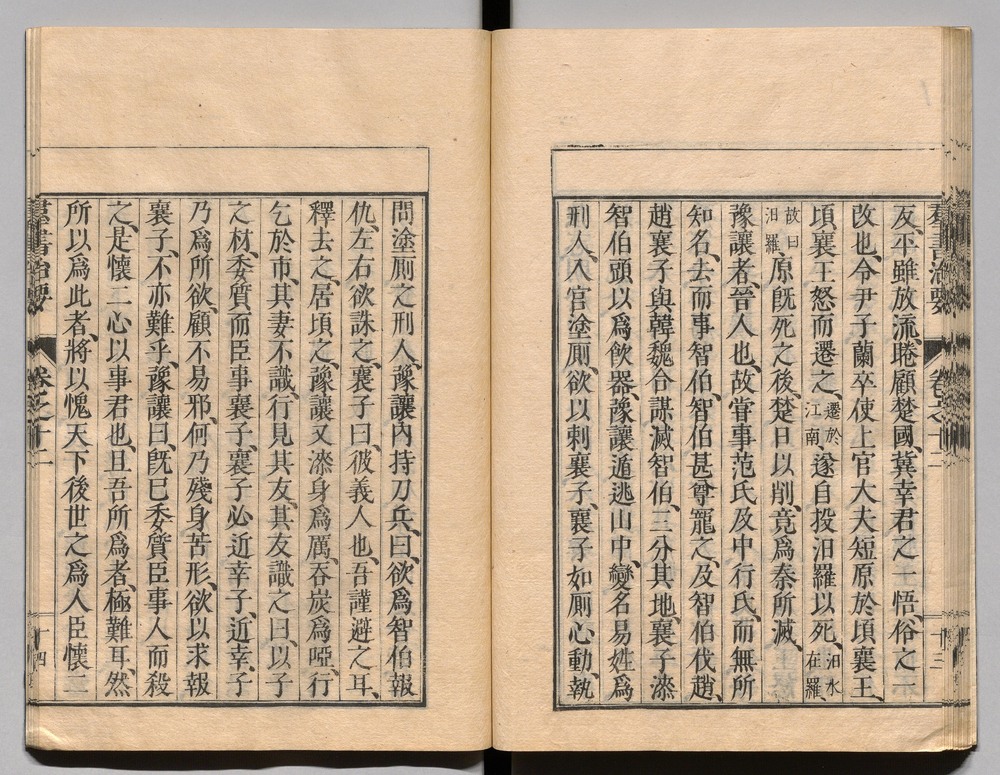 反、平雖放流、睠顧楚國、冀幸君之一悟、俗之一
改也、令尹子蘭卒使上官大夫短原於頃襄王、
頃襄王怒而遷之、遷於江南遂自投汨羅以死、汨水在羅
故曰汨羅原旣死之後、楚日以削、竟爲秦所滅、
豫讓者、晉人也、故甞事范氏及中行氏、而無所
知名、去而事智伯、智伯甚尊寵之、及智伯伐趙、
趙襄子與韓魏合謀滅智伯、三分其地、襄子漆
智伯頭以爲飮器、豫讓遁逃山中、變名易姓爲
刑人、入官塗厠、欲以刺襄子、襄子如厠心動、執
羣書治要 卷之十二 十三
問塗厠之刑人、豫讓内持刀兵、曰、欲爲智伯報
仇、左右欲誅之、襄子曰、彼義人也、吾謹避之耳、
釋去之、居頃之、豫讓又漆身爲厲、吞炭爲啞、行
乞於市、其妻不識、行見其友、其友識之曰、以子
之材、委質而臣事襄子、襄子必近幸子、近幸子、
乃爲所欲、顧不易邪、何乃殘身苦形、欲以求報
襄子、不亦難乎、豫讓曰、旣已委質臣事人而殺
之、是懷二心以事君也、且吾所爲者、極難耳、然
所以爲此者、將以愧天下後世之爲人臣懷二
羣書治要 卷之十二 十四